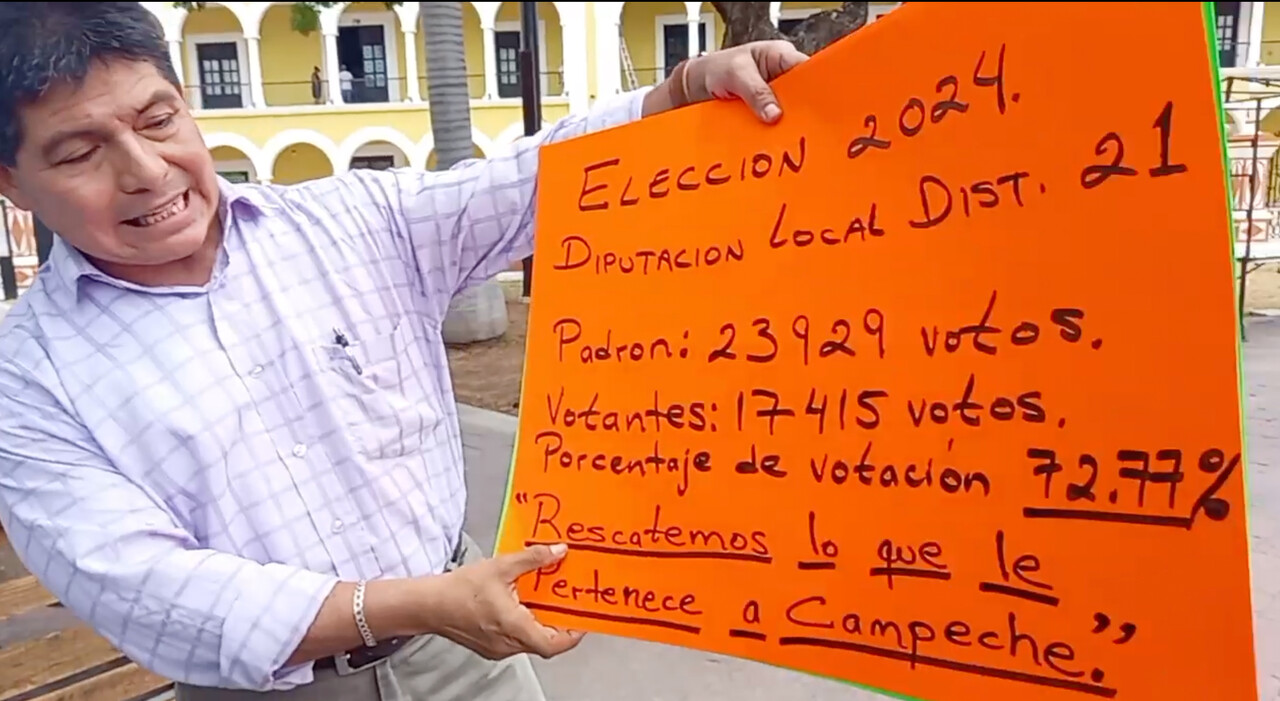 ELECCION 2024.
DIPUTACION LOCAL DIST. 21
Padron: 23929 votos.
Votantes: 17415 votos.
Porcentaje de votación 72.77%
"Rescatemos lo que le
Pertenece a Campeche."